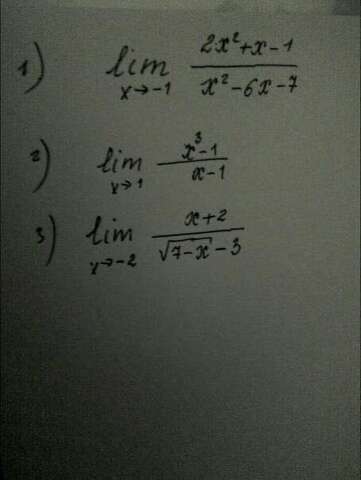 1) lim x→-1 (2x²+x-1)/(x²-6x-7)
2) lim x→1 (x³-1)/(x-1)
3) lim x→-2 (x+2)/(√(7-x)-3)